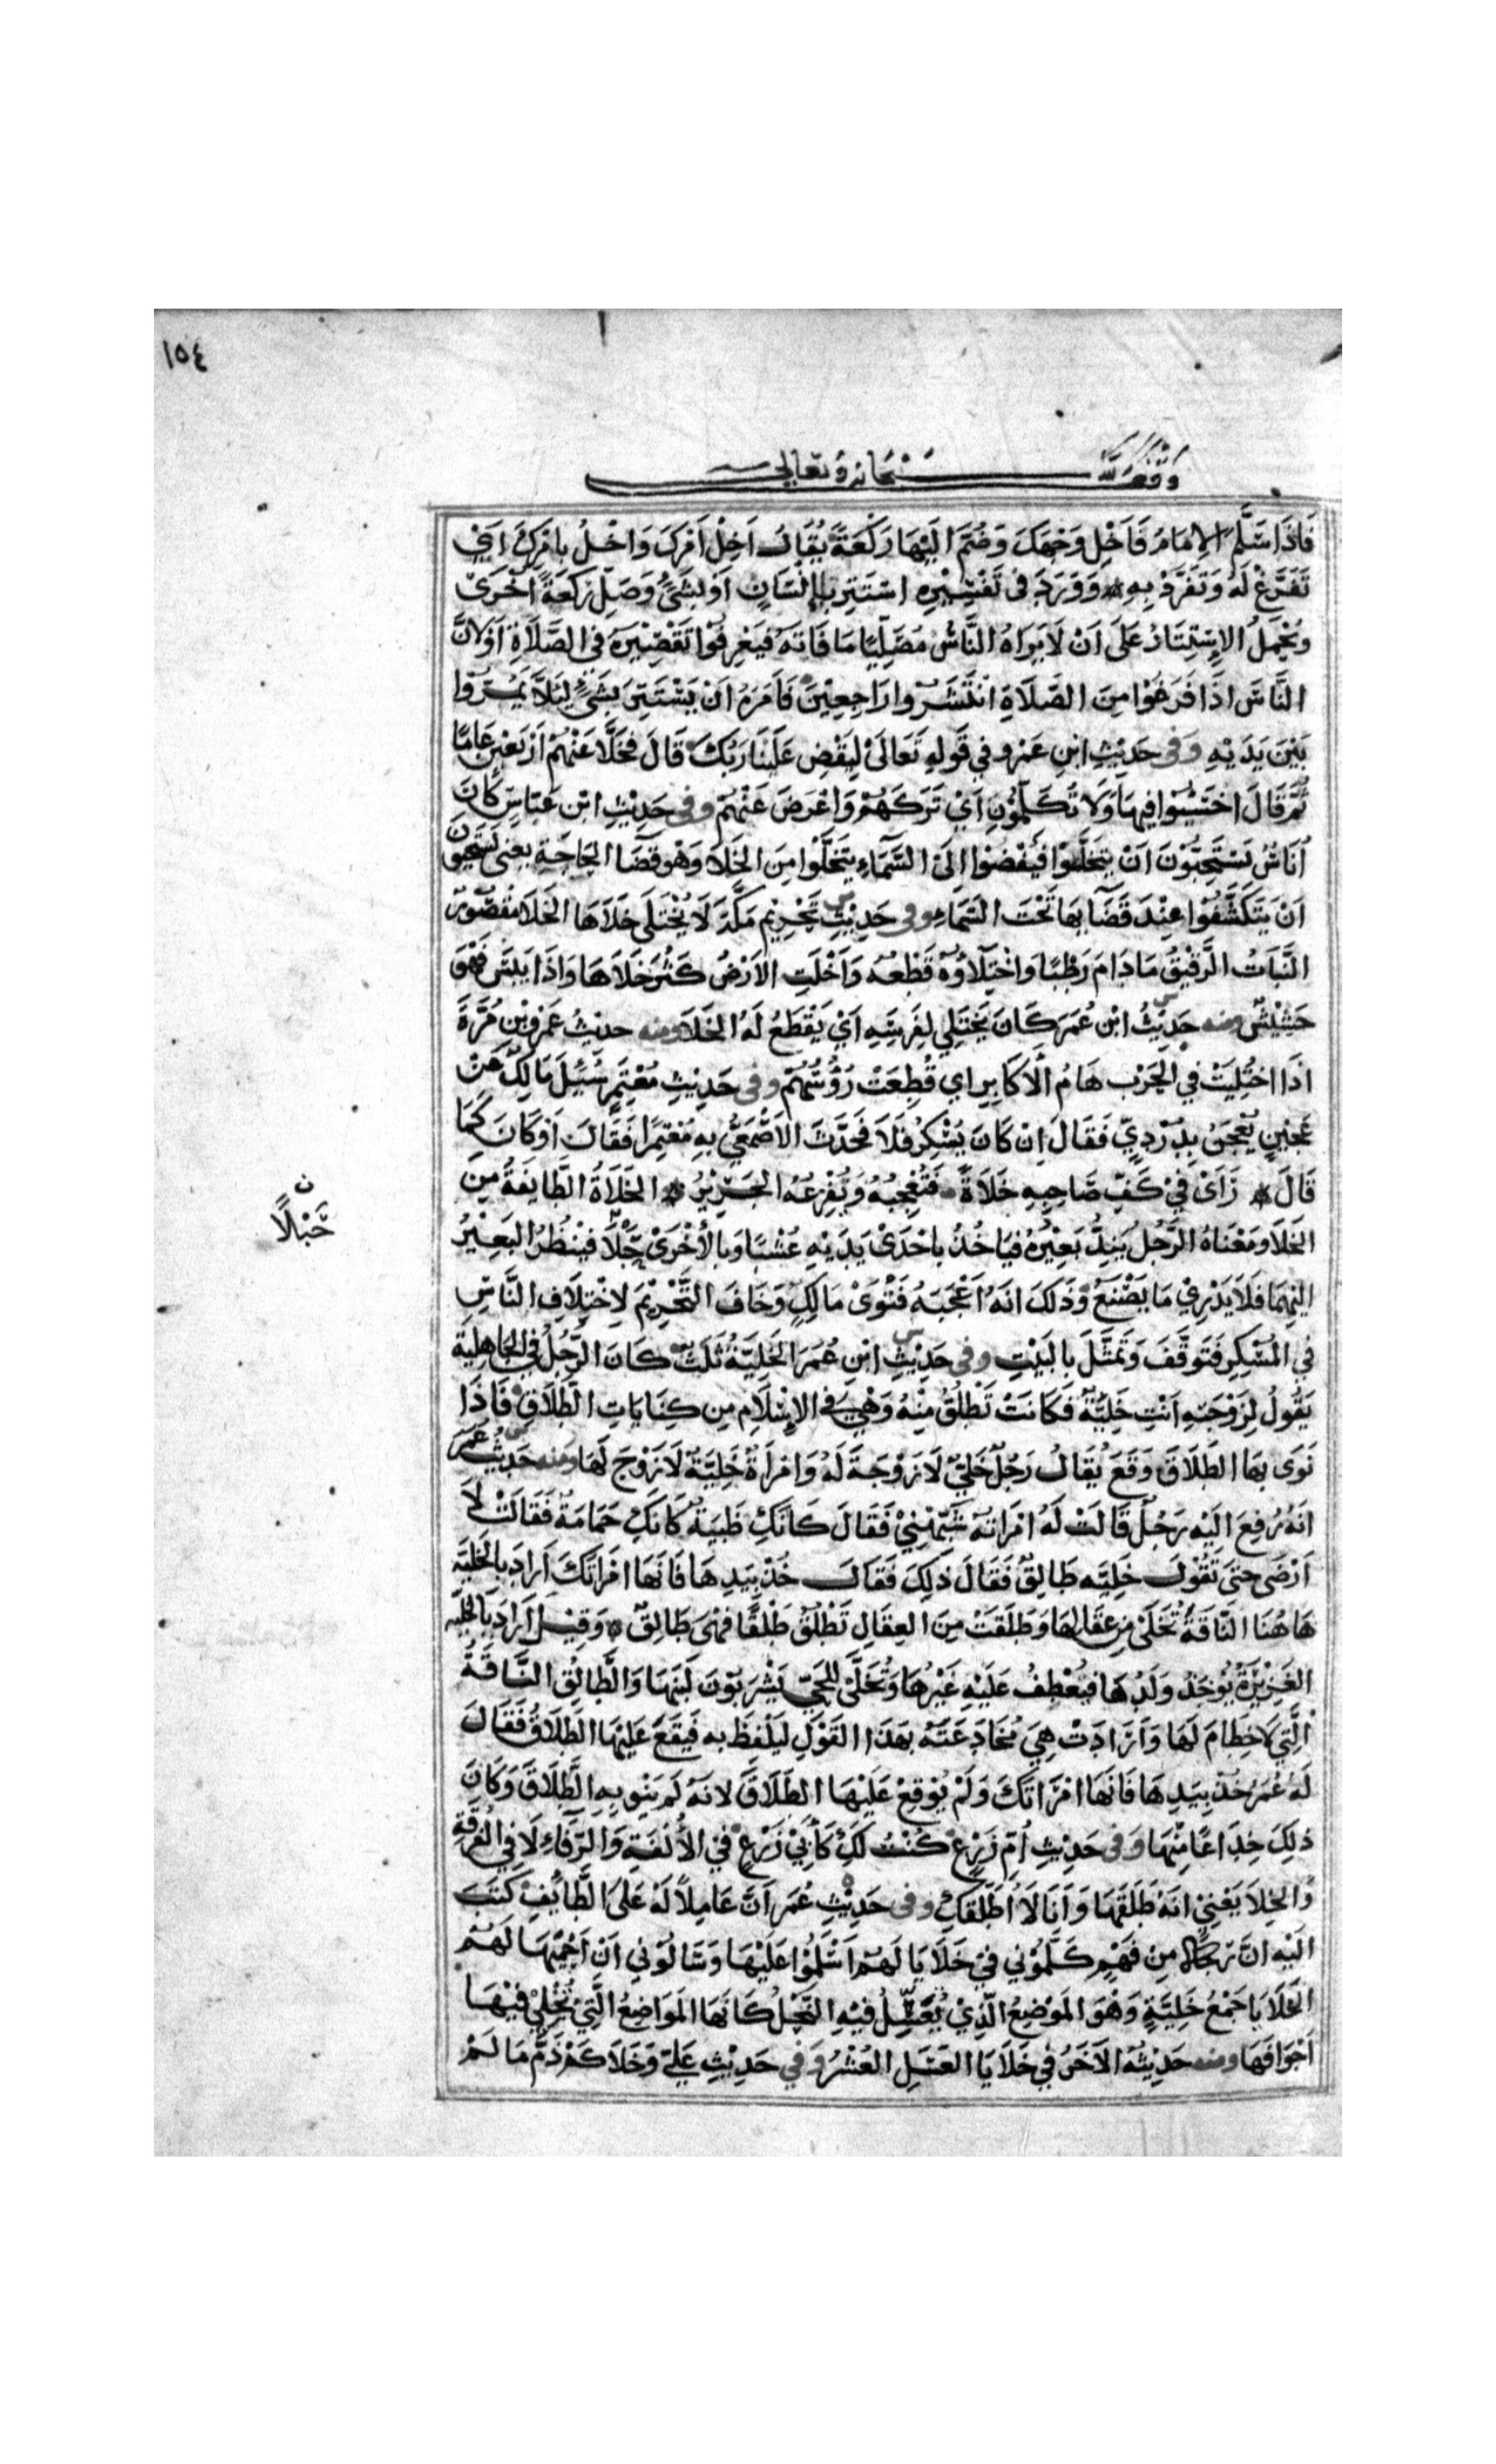 ١٥٤
وقف لله سبحانه وتعالى
فَاذَا سَلَّمَ الامَامُ فَاَخْلِ وَجْهَكَ وَضُمَّ الَيْهَا رَكْعَةً يُقَالُ اَخْلِ اَمْرَكَ وَاخْلُ بِاَمْرِكَ اَيْ
تَفَرَّغْ لَهُ وَتَفَرَّدْ بِهِ وَوَرَدَ فى تَفْسِيْرِهِ اسْتَتِرْ بِاِنْسَانٍ اَوبشَىْءٍ وَصَلِّ رَكعَةً اُخْرَىْ
وَيُحْمَلُ الاِسْتِتَارُ عَلَى اَنْ لَا يَرَاهُ النَّاسُ مُصَلِّيًا مَا فَاتَهُ فَيَعْرِفُوْا تَقْصِيْرَهُ فى الصَّلَاةِ اَوْلانَّ
النَّاسَ اذَا فَرَغُوْا مِنَ الصَّلَاةِ انْتَشَرُوا رَاجِعِيْنَ فَاَمَرَهُ اَنْ يَسْتَتِرَ بِشَىْءٍ لِئَلاَّ يَمُرُّوا
بَيْنَ يَدَيْهِ وَفى حَدِيْثِ ابنِ عَمْرو في قَولهِ تَعَالَىْ لِيَقْضِ عَلَيْنَا رَبُّكَ قَالَ فَخَلَّا عَنْهُمْ اَرْبَعِيْنَ عَامًا
ثُمَّ قَالَ اخْسَئُوا فِيهَا وَلَا تُكَلِّمُوْنِ اَيْ تَرَكَهُمْ وَاعْرَضَ عَنْهُمْ وفى حَدِيْثِ ابْنِ عَبَّاسٍ كَانَ
اُنَاسٌ يَسْتَحِيُّوْنَ اَنْ يَتَخَلَّوْا فَيُفْضُوْا اِلَىْ السَّمَاءِ يَتَخَلَّوْا مِنَ الخَلَا وَهْوَ قَضَا الحَاجَةِ يعنى يَسْتَحيُونَ
اَنْ يَتَكَشَّفُوْا عِنْدَ قَضَآيِهَا تَحْتَ السَّمَاءِ وفى حَدِيْثِ تَحْرِيْمِ مَكَّةَ لَا يُخْتَلَى خَلَاهَا الخَلَا مَقْصُوْرٌ
النَّبَاتُ الرَّقِيْقُ مَا دَامَ رَطْبًا وَاخْتِلَاؤُهُ قَطْعُهُ وَاَخْلَتِ الاَرْضُ كَثُرَ خَلَاهَا وَاذَا يَبِسَ فَهْوَ
حَشِيْشٌ ومنه حَدِيْثُ ابْنِ عُمَرَ كَانَ يَخْتَلِي لِفَرَسِهِ اَيْ يَقْطَعُ لَهُ الخَلَا ومنه حديْثُ عَمْرِو بْنِ مُرَّةَ
اذَا اخْتُلِيَتْ في الحَرْبِ هَامُ الاَكَابِرِ اي قُطِعَتْ رُؤُسُهُمْ وفى حَدِيْثِ مُعْتَمِرٍ سُئِلَ مَالِكٌ عَنْ
عَجِيْنٍ يُعْجَنُ بِدُرْدِيٍّ فَقَالَ اِنْ كَانَ يُسْكِرُ فَلَا فَحَدَّثَ الاَصْمَعِيُّ بِهِ مُعْتَمِرًا فَقَالَ اَوْ كَانَ كَمَا
قَالَ رَأى فِيْ كَفِّ صَاحِبِهِ خَلَاةً فَتُعْجِبُهُ وَيُفْزِعُهُ الجَرِيْرُ الخَلَاةُ الطَّايفَةُ مِنَ
الخَلَا وَمَعْنَاهُ الرَّجُلُ يَنِدُّ بَعِيْرُهُ فَيَاخُذُ باِحْدَىْ يَدَيْهِ عُشْبًا وَبالاُخْرَىْ حَبْلًا فَيَنْظُرُ البَعِيْرُ
الَيْهِمَا فَلَا يَدْرِيْ مَا يَصْنَعُ وَذَلكَ انَهُ اَعْجَبَهُ فَتْوَىْ مَالِكٍ وَخَافَ التَّحْرِيْمَ لاِخْتِلَافِ النَّاسِ
في المُسْكِرِ فَتَوَقَّفَ وَتَمَثَّلَ بِالبَيْتِ وفى حَدِيْثِ ابنِ عُمَرَ الخَلِيَّةُ ثَلَثٌ كَانَ الرَّجُلُ في الجَاهِليَّةِ
يَقُولُ لِزَوْجَتِهِ اَنْتِ خَلِيَّةٌ فَكَانَتْ تَطْلُقُ مِنْهُ وَهْيَ فى الاِسْلَامِ مِن كِنَايَاتِ الطَّلَاقِ فَاذَا
نَوَى بِهَا الطَّلَاقَ وَقَعَ يُقَالُ رَجُلٌ خَلِيٌّ لَا زَوْجَةَ لَهُ وَامْرَاَةٌ خَلِيَّةٌ لَا زَوْجَ لَهَا ومنه حَدِيْثُ عُمَرَ
انَهُ رُفِعَ الَيْهِ رَجُلٌ قَالَتْ لَهُ امْرَاتُهُ شَبِّهْنِيْ فَقَالَ كَانَّكِ ظَبْيَةٌ كَانَكِ حَمَامَةٌ فَقَالَتْ لَا
اَرْضَى حتىَ تَقُولَ خَلِيَّه طَالِقٌ فَقَالَ ذَلِكَ فَقَالَ خُذْ بِيَدِهَا فَانَهَا امْرَاتُكَ اَرَادَ بِالخَليَّه
هَاهُنَا النَّاقَةُ تُخَلَّىْ مِنْ عِقَالِهَا وَطَلَقَتْ مِنَ العِقَالِ تَطْلُقُ طَلْقًا فَهْىَ طَالِقٌ وَقِيْلَ اَرَادَ بالخَليَّه
الغَزِيْرَةُ يُوْخَذُ وَلَدُهَا فَيُعْطَفُ عَلَيْهِ غَيْرُهَا وَتُخَلَّىْ لِلْحَيِّ يَشْرَبُوْنَ لَبَنَهَا وَالطَّالِقُ النَّاقَةُ
الَّتِي لَا خِطَامَ لَهَا وَاَرَادَتْ هِيَ مُخَادَعَتَهُ بِهَذَا القَوْلِ لِيَلْفِظَ بِهِ فَيَقَعَ عَلَيْهَا الطَّلَاقُ فَقَالَ
لَهُ عُمَرُ خُذْ بِيَدِهَا فَانَهَا امْرَاتُكَ وَلَمْ يُوْقِعْ عَلَيْهَا الطَّلَاقَ لانَهُ لَمْ يَنْوِ بِهِ الطَّلَاقَ وَكَانَ
ذَلِكَ خِدَاعًا مِنْهَا وَفى حَدِيْثِ اُمِّ زَرْعٍ كُنْتُ لَكِ كَاَبِيْ زَرْعٍ فِي الاُلْفَةِ وَالرِّفَاءِ لَا فِي الفُرْقَةِ
وَالخِلَا يَعْنِيْ انَهُ طَلَقَهَا وَاَنَا لَا اُطَلِّقُكِ وفى حَدِيْثِ عُمَرَ اَنَّ عَامِلاً لَهُ عَلَى الطَّايفِ كَتَبَ
الَيْهِ انَّ رجَالاً مِنْ فَهْمٍ كَلَّمُوْنِي فِيْ خَلَايَا لَهُمْ اَسْلَمُوْا عَلَيْهَا وَسَالُوْنِي اَنْ اَحْمِيَهَا لَهُمْ
الخَلَايَا جَمْعُ خَلِيَّةٍ وَهْوَ المَوْضِعُ الَّذِيْ يُعَسِّلُ فيْهِ النَّحْلُ كَانَهَا المَوَاضِعُ الَّتِيْ تُخْلِيْ فيْهَا
اَجْوَافَهَا ومنه حَدِيْثُهُ الاَخَرُ في خَلَايَا العَسَلِ العُشْرُ وَفي حَدِيْثِ عَلِيٍّ وَخَلَاكُمْ ذَمٌّ مَا لَمْ
ن
حَبْلًا